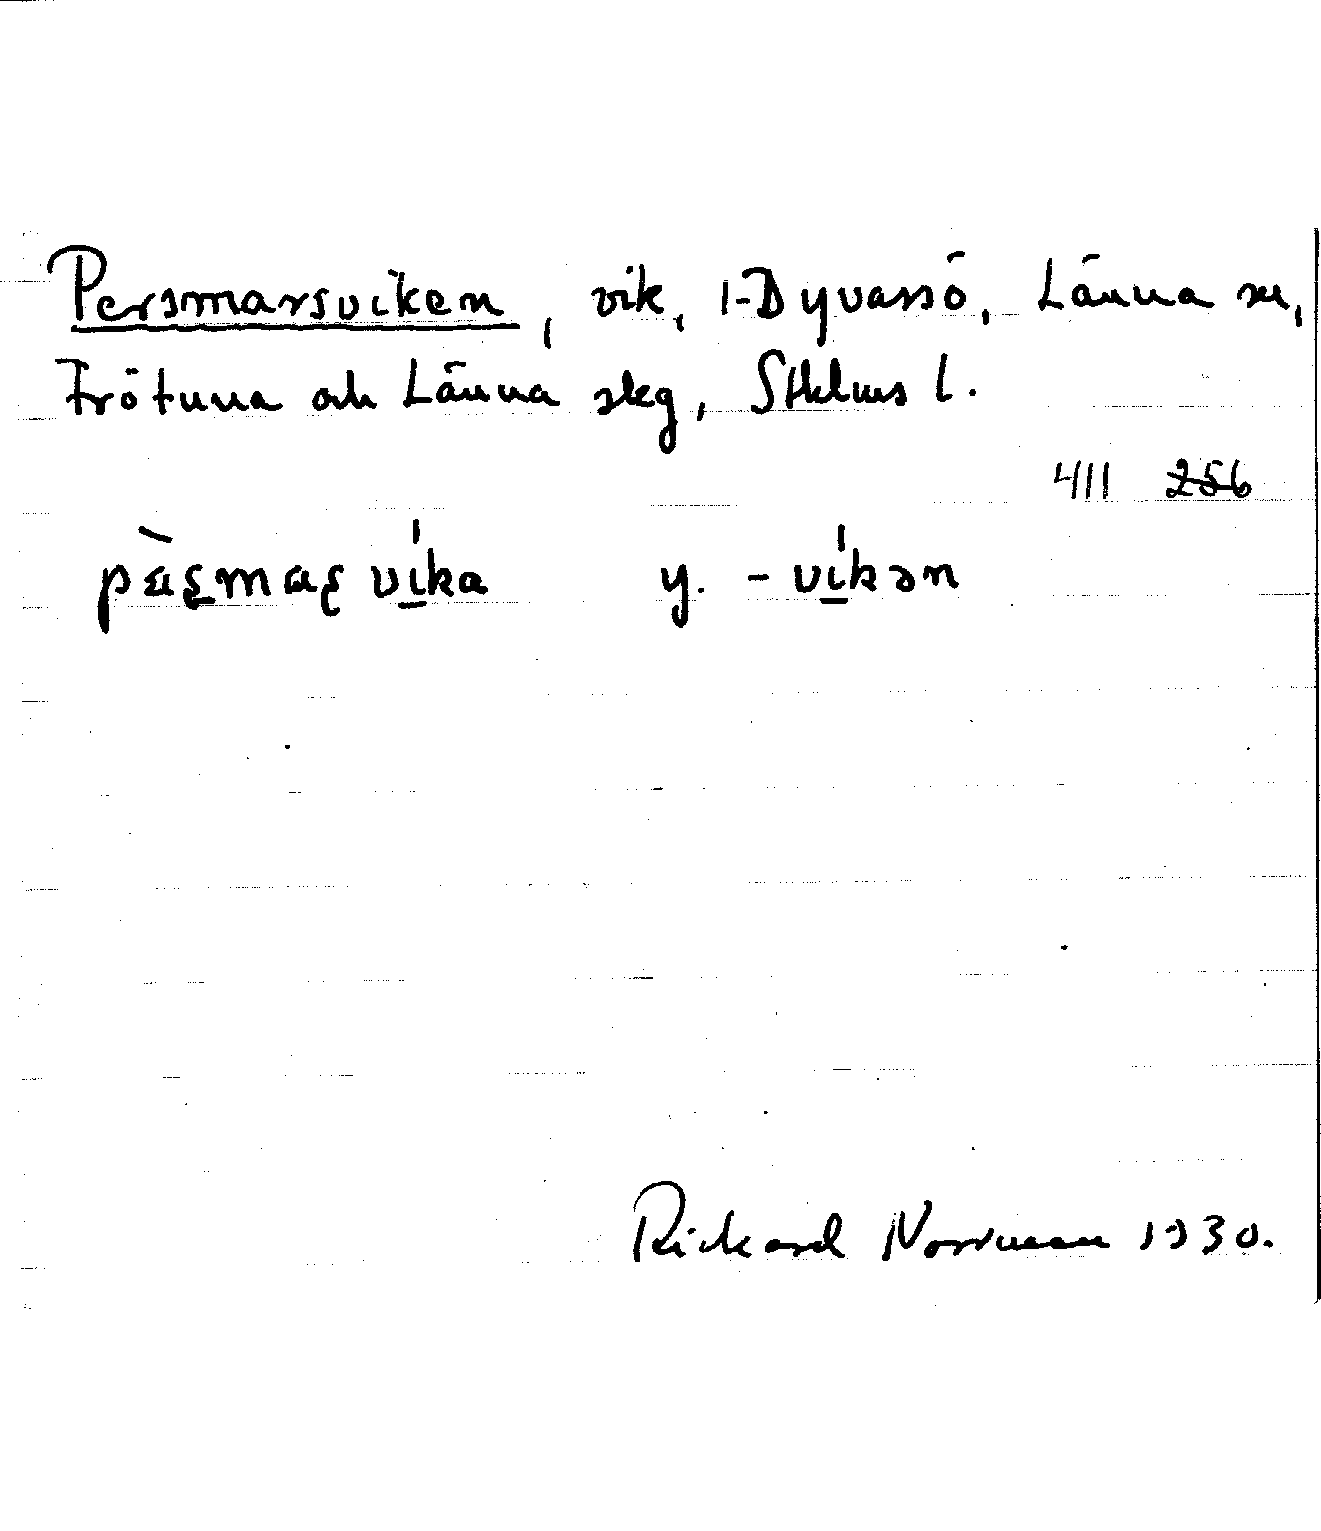 Persmarsviken, vik, 1-Dyvassö, Länna sn,
Frötuna och Länna skg, Sthlms l.
411 256
pàʂmaʂvika y. -vikən
Rickard Norrman 1930.